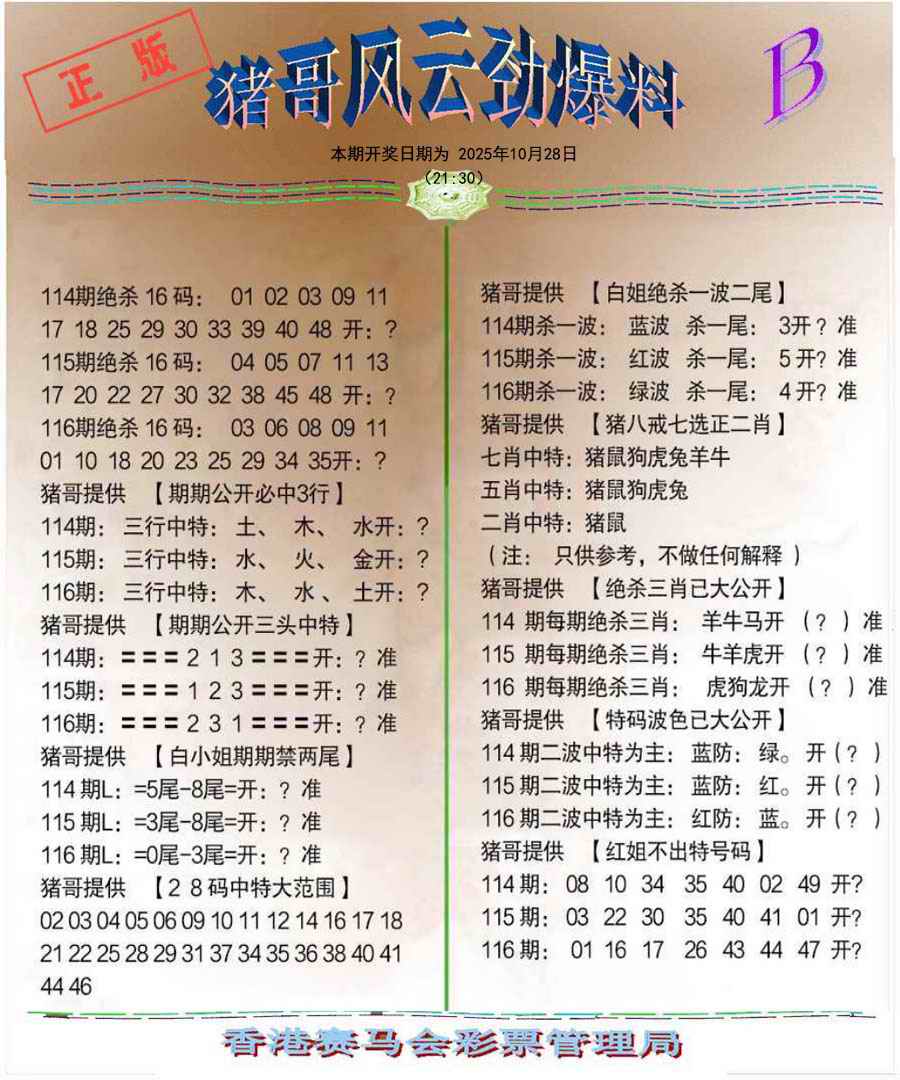 正版
猪哥风云劲爆料
B
本期开奖日期为 2025年10月28日
（21:30）
114期绝杀16码： 01 02 03 09 11
17 18 25 29 30 33 39 40 48 开：?
115期绝杀16码： 04 05 07 11 13
17 20 22 27 30 32 38 45 48 开：?
116期绝杀16码： 03 06 08 09 11
01 10 18 20 23 25 29 34 35开：?
猪哥提供 【期期公开必中3行】
114期：三行中特：土、 木、 水开：?
115期：三行中特：水、 火、 金开：?
116期：三行中特：木、 水 、土开：?
猪哥提供 【期期公开三头中特】
114期：===2 1 3===开：? 准
115期：===1 2 3===开：? 准
116期：===2 3 1===开：? 准
猪哥提供 【白小姐期期禁两尾】
114期L：=5尾-8尾=开：? 准
115期L：=3尾-8尾=开：? 准
116期L：=0尾-3尾=开：? 准
猪哥提供 【28码中特大范围】
02 03 04 05 06 09 10 11 12 14 16 17 18
21 22 25 28 29 31 37 34 35 36 38 40 41
44 46
猪哥提供 【白姐绝杀一波二尾】
114期杀一波： 蓝波 杀一尾： 3开? 准
115期杀一波： 红波 杀一尾： 5开? 准
116期杀一波： 绿波 杀一尾： 4开? 准
猪哥提供 【猪八戒七选正二肖】
七肖中特：猪鼠狗虎兔羊牛
五肖中特：猪鼠狗虎兔
二肖中特：猪鼠
（注： 只供参考，不做任何解释 ）
猪哥提供 【绝杀三肖已大公开】
114 期每期绝杀三肖： 羊牛马开 （? ）准
115 期每期绝杀三肖： 牛羊虎开 （? ）准
116 期每期绝杀三肖： 虎狗龙开 （? ）准
猪哥提供 【特码波色已大公开】
114期二波中特为主： 蓝防：绿。开（? ）
115期二波中特为主： 蓝防：红。开（? ）
116期二波中特为主： 红防：蓝。开（? ）
猪哥提供 【红姐不出特号码】
114期： 08 10 34 35 40 02 49 开?
115期： 03 22 30 35 40 41 01 开?
116期： 01 16 17 26 43 44 47 开?
香港赛马会彩票管理局